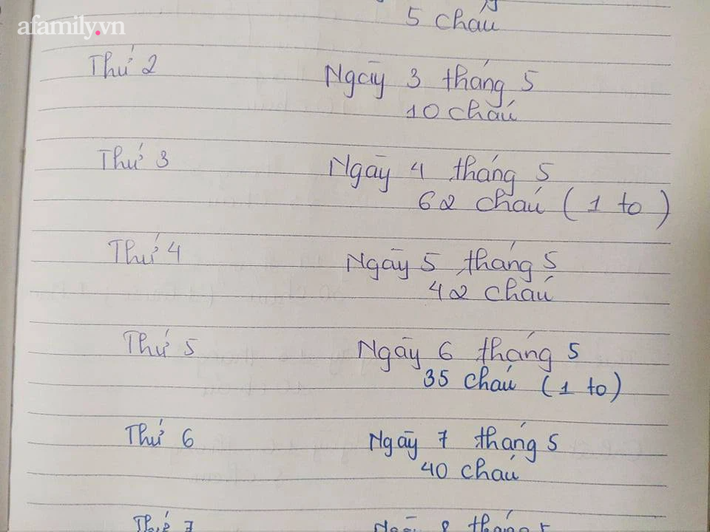 afamily.vn
5 cháu
Thứ 2 Ngày 3 tháng 5
10 cháu
Thứ 3 Ngày 4 tháng 5
62 cháu (1 to)
Thứ 4 Ngày 5 tháng 5
42 cháu
Thứ 5 Ngày 6 tháng 5
35 cháu (1 to)
Thứ 6 Ngày 7 tháng 5
40 cháu
Thứ 7 Ngày 8 tháng 5